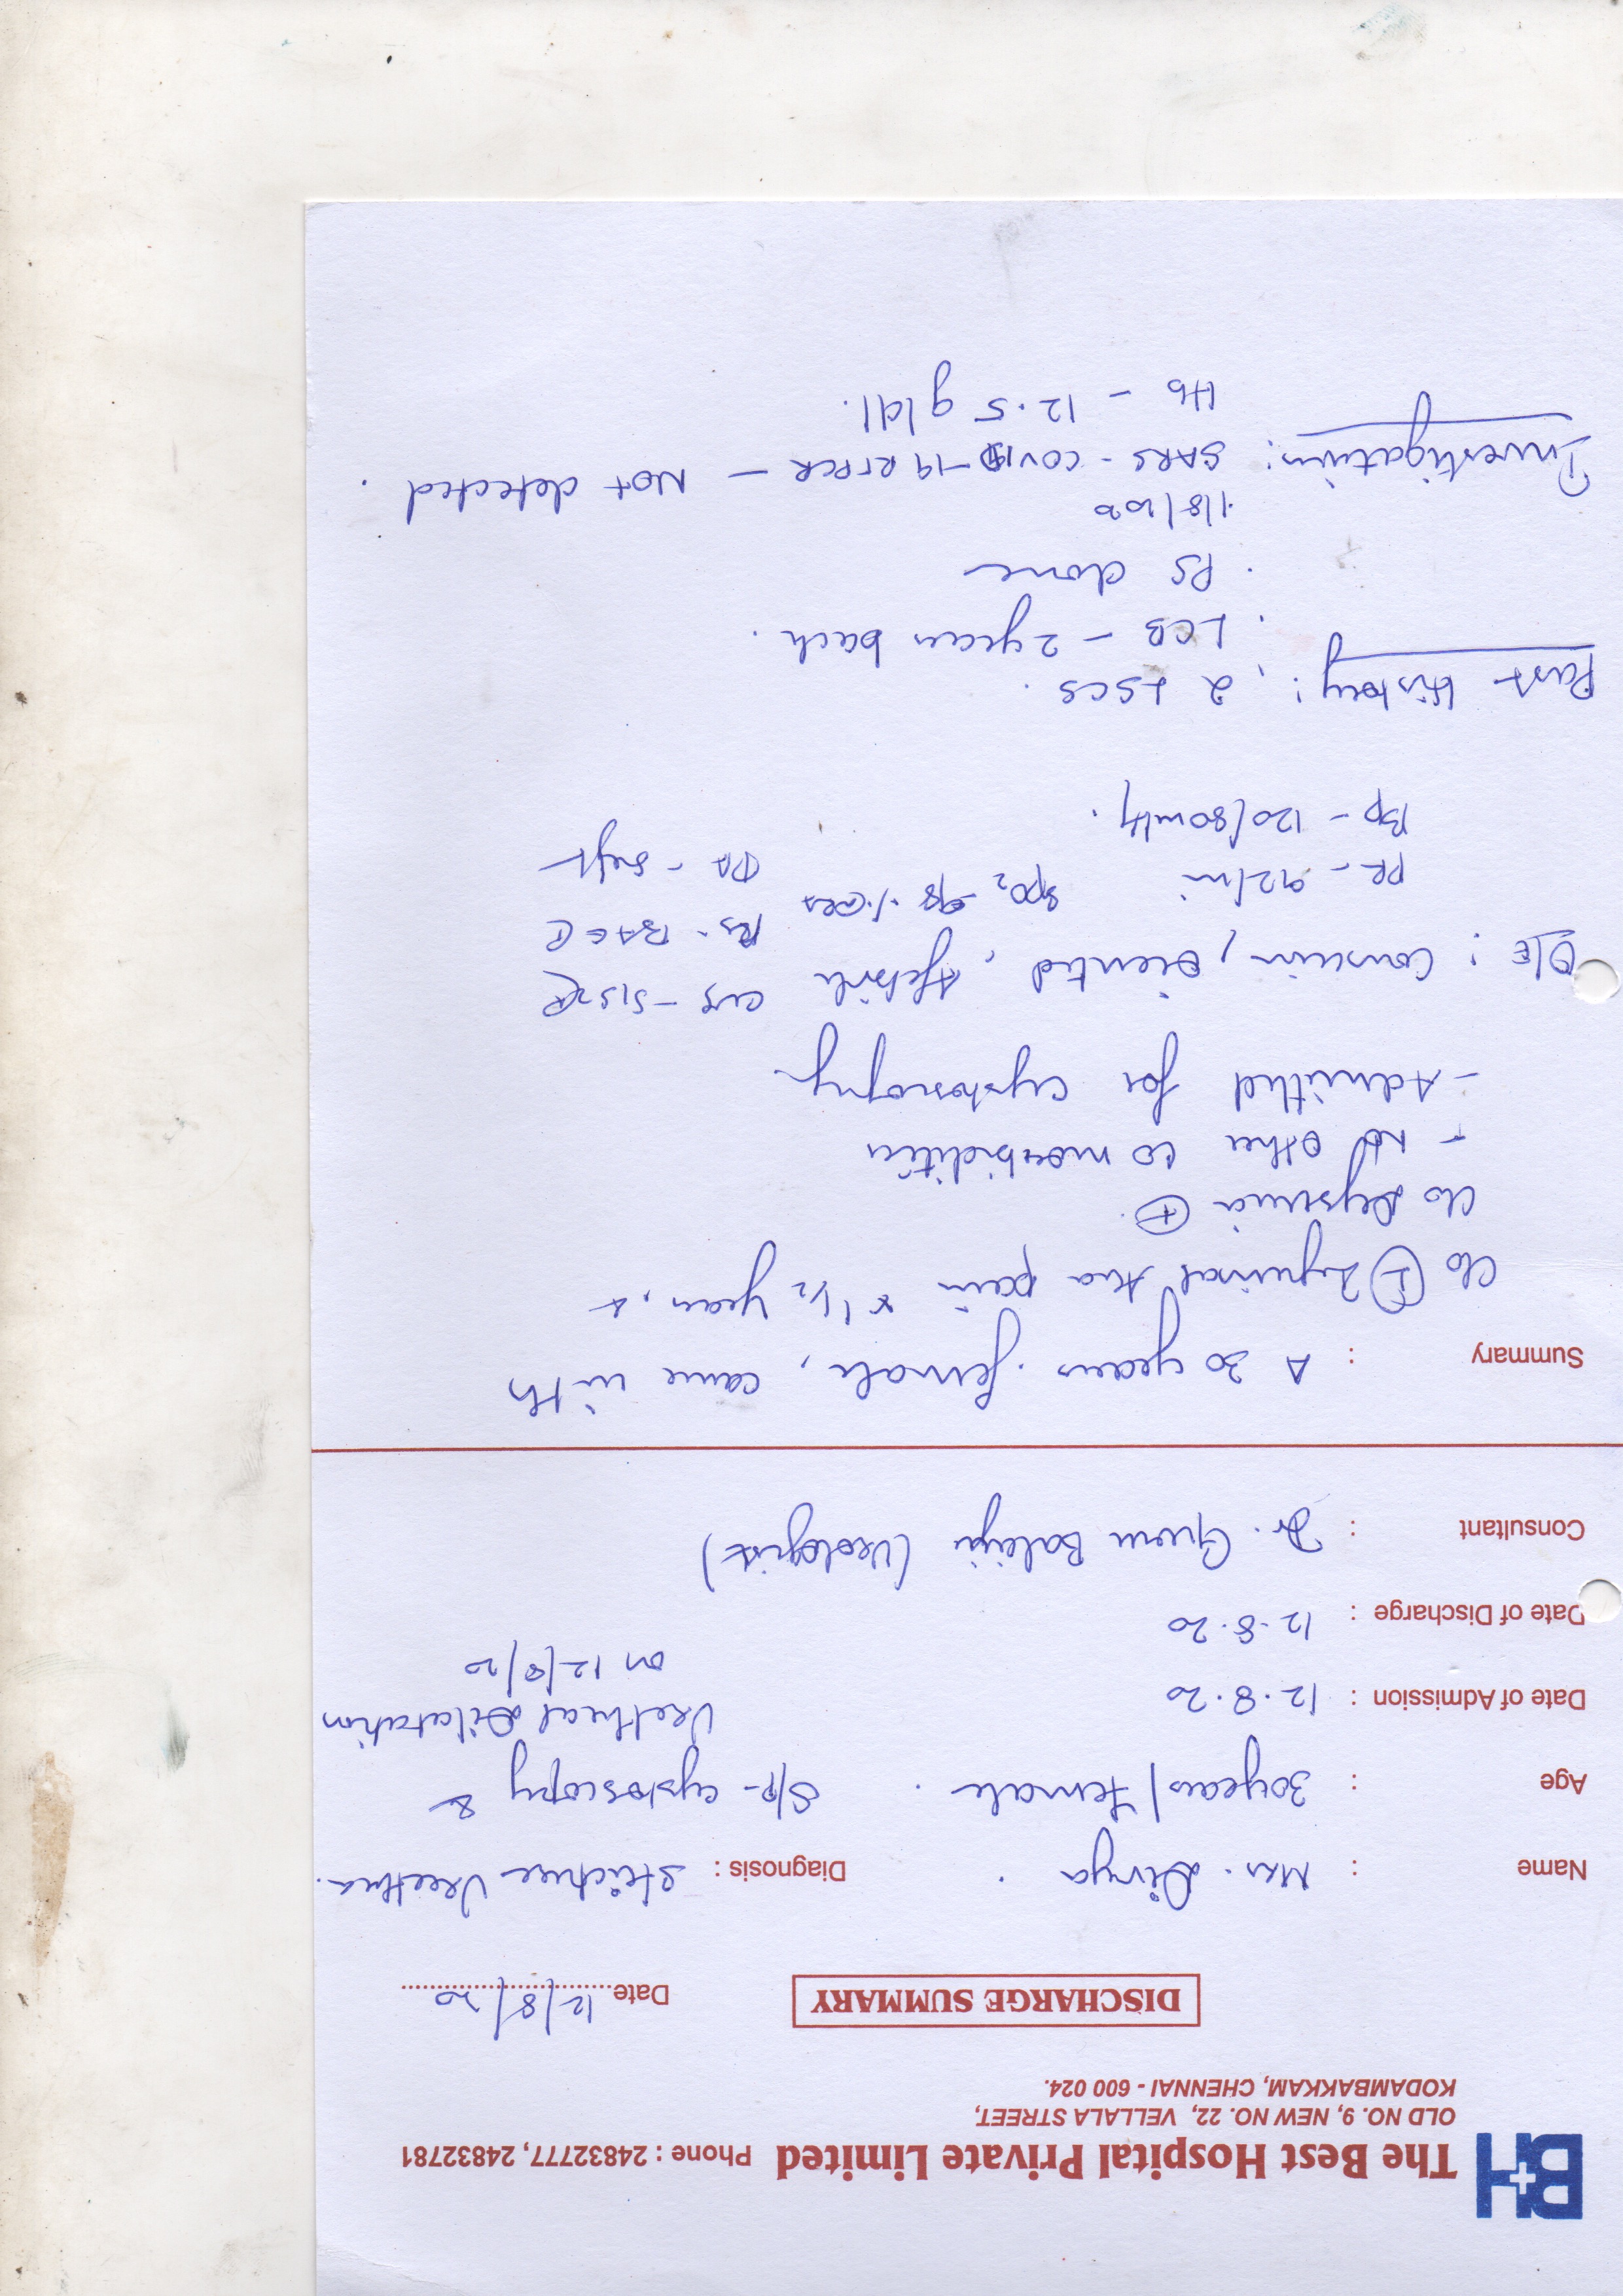 BH
The Best Hospital Private Limited Phone : 24832777, 24832781
OLD NO. 9, NEW NO. 22, VELLALA STREET,
KODAMBAKKAM, CHENNAI - 600 024.
DISCHARGE SUMMARY Date 12/8/20
Name : Mrs. Divya Diagnosis : Stricture Urethra.
Age : 30years/Female S/P- cystoscopy &
Urethral Dilatation
Date of Admission : 12.8.20 on 12/8/20
Date of Discharge : 12.8.20
Consultant : Dr. Guru Balaji (Urologist)
Summary : A 30 years female, came with
C/o Inguinal pain x 1 1/2 years,
C/o Dysuria +
- No other comorbidities
- Admitted for cystoscopy
O/E : Conscious, oriented, Afebrile CVS - S1S2
PR - 92/mi SpO2 98 % RS - BAE
BP - 120/80mmHg. PA - soft
Past History : 2 LSCS.
LCB - 2 years back.
PS done
Investigation : SARS - COVID -19 RTPCR - Not detected.
Hb - 12.5 g/dl.